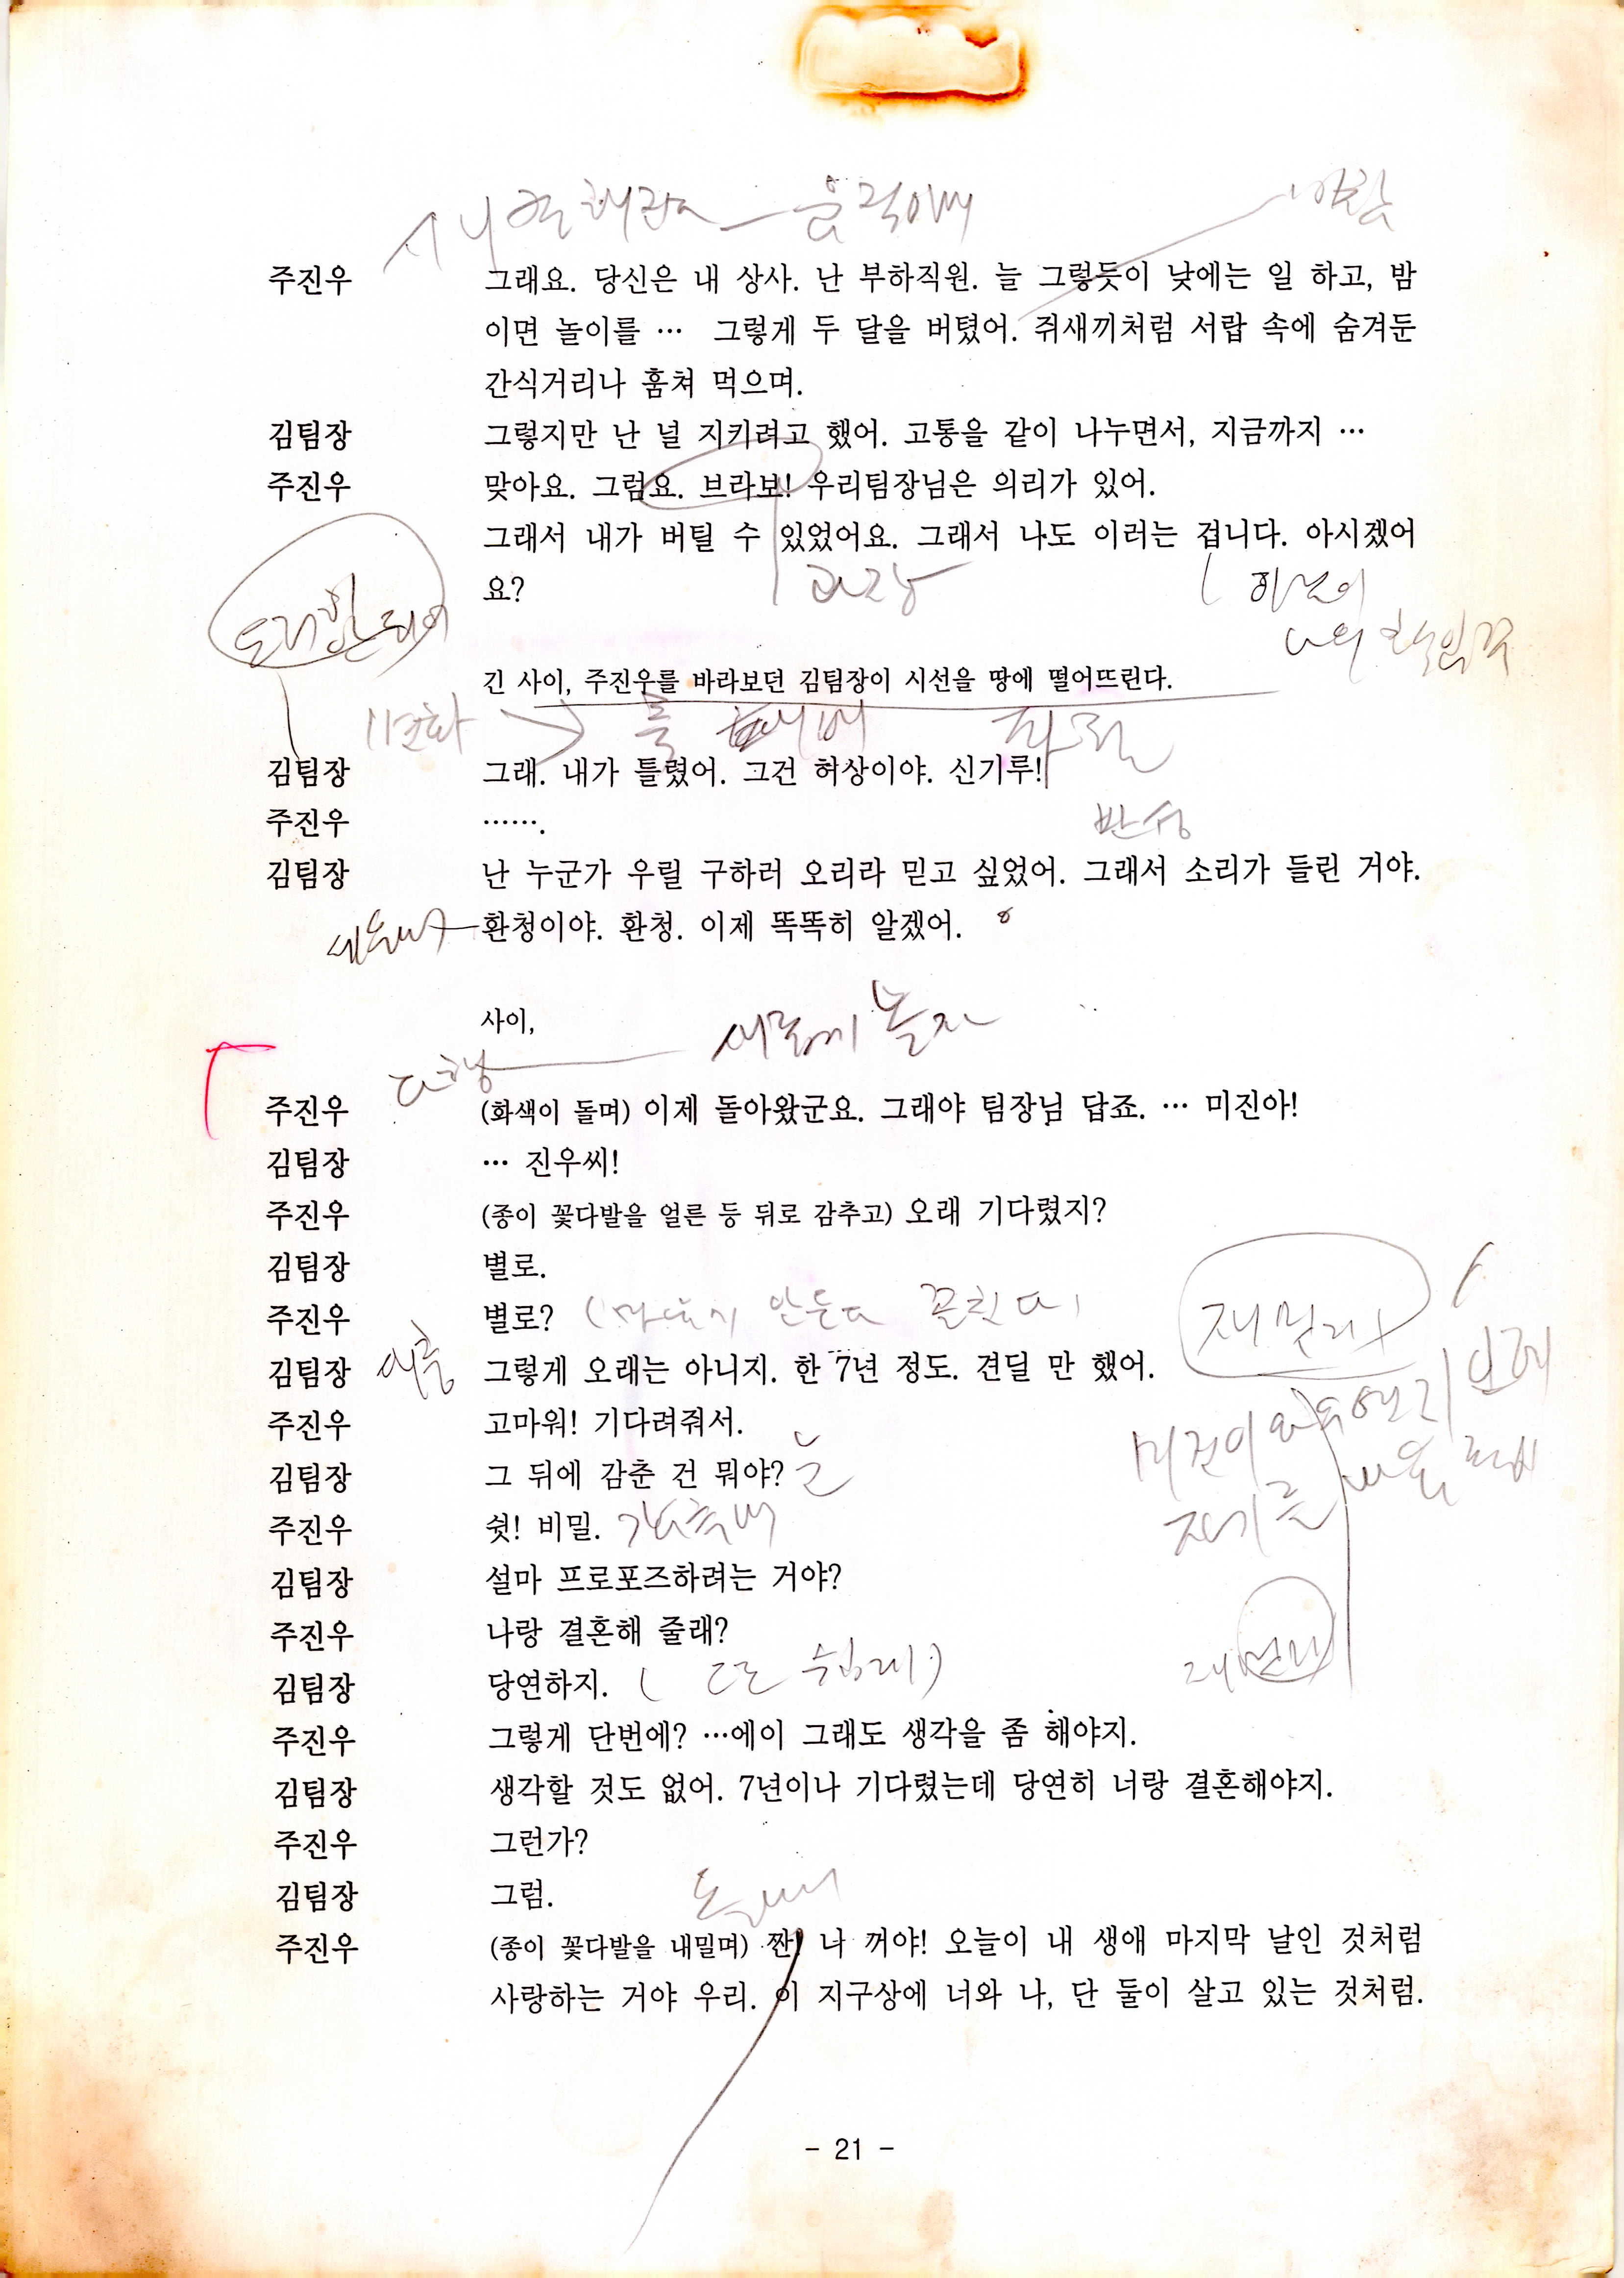 주진우 그래요. 당신은 내 상사. 난 부하직원. 늘 그렇듯이 낮에는 일 하고, 밤
이면 놀이를 … 그렇게 두 달을 버텼어. 쥐새끼처럼 서랍 속에 숨겨둔
간식거리나 훔쳐 먹으며.
김팀장 그렇지만 난 널 지키려고 했어. 고통을 같이 나누면서, 지금까지 …
주진우 맞아요. 그럼요. 브라보! 우리팀장님은 의리가 있어.
그래서 내가 버틸 수 있었어요. 그래서 나도 이러는 겁니다. 아시겠어
요?
과장
긴 사이, 주진우를 바라보던 김팀장이 시선을 땅에 떨어뜨린다.
김팀장 그래. 내가 틀렸어. 그건 허상이야. 신기루!
주진우 …….
반성
김팀장 난 누군가 우릴 구하러 오리라 믿고 싶었어. 그래서 소리가 들린 거야.
환청이야. 환청. 이제 똑똑히 알겠어.
사이,
새롭게 놀자
다행
주진우 (화색이 돌며) 이제 돌아왔군요. 그래야 팀장님 답죠. … 미진아!
김팀장 … 진우씨!
주진우 (종이 꽃다발을 얼른 등 뒤로 감추고) 오래 기다렸지?
김팀장 별로.
주진우 별로?
김팀장 그렇게 오래는 아니지. 한 7년 정도. 견딜 만 했어.
주진우 고마워! 기다려줘서.
김팀장 그 뒤에 감춘 건 뭐야?
주진우 쉿! 비밀.
김팀장 설마 프로포즈하려는 거야?
주진우 나랑 결혼해 줄래?
김팀장 당연하지.
주진우 그렇게 단번에? …에이 그래도 생각을 좀 해야지.
김팀장 생각할 것도 없어. 7년이나 기다렸는데 당연히 너랑 결혼해야지.
주진우 그런가?
김팀장 그럼.
주진우 (종이 꽃다발을 내밀며) 짠! 나 꺼야! 오늘이 내 생애 마지막 날인 것처럼
사랑하는 거야 우리. 이 지구상에 너와 나, 단 둘이 살고 있는 것처럼.
- 21 -